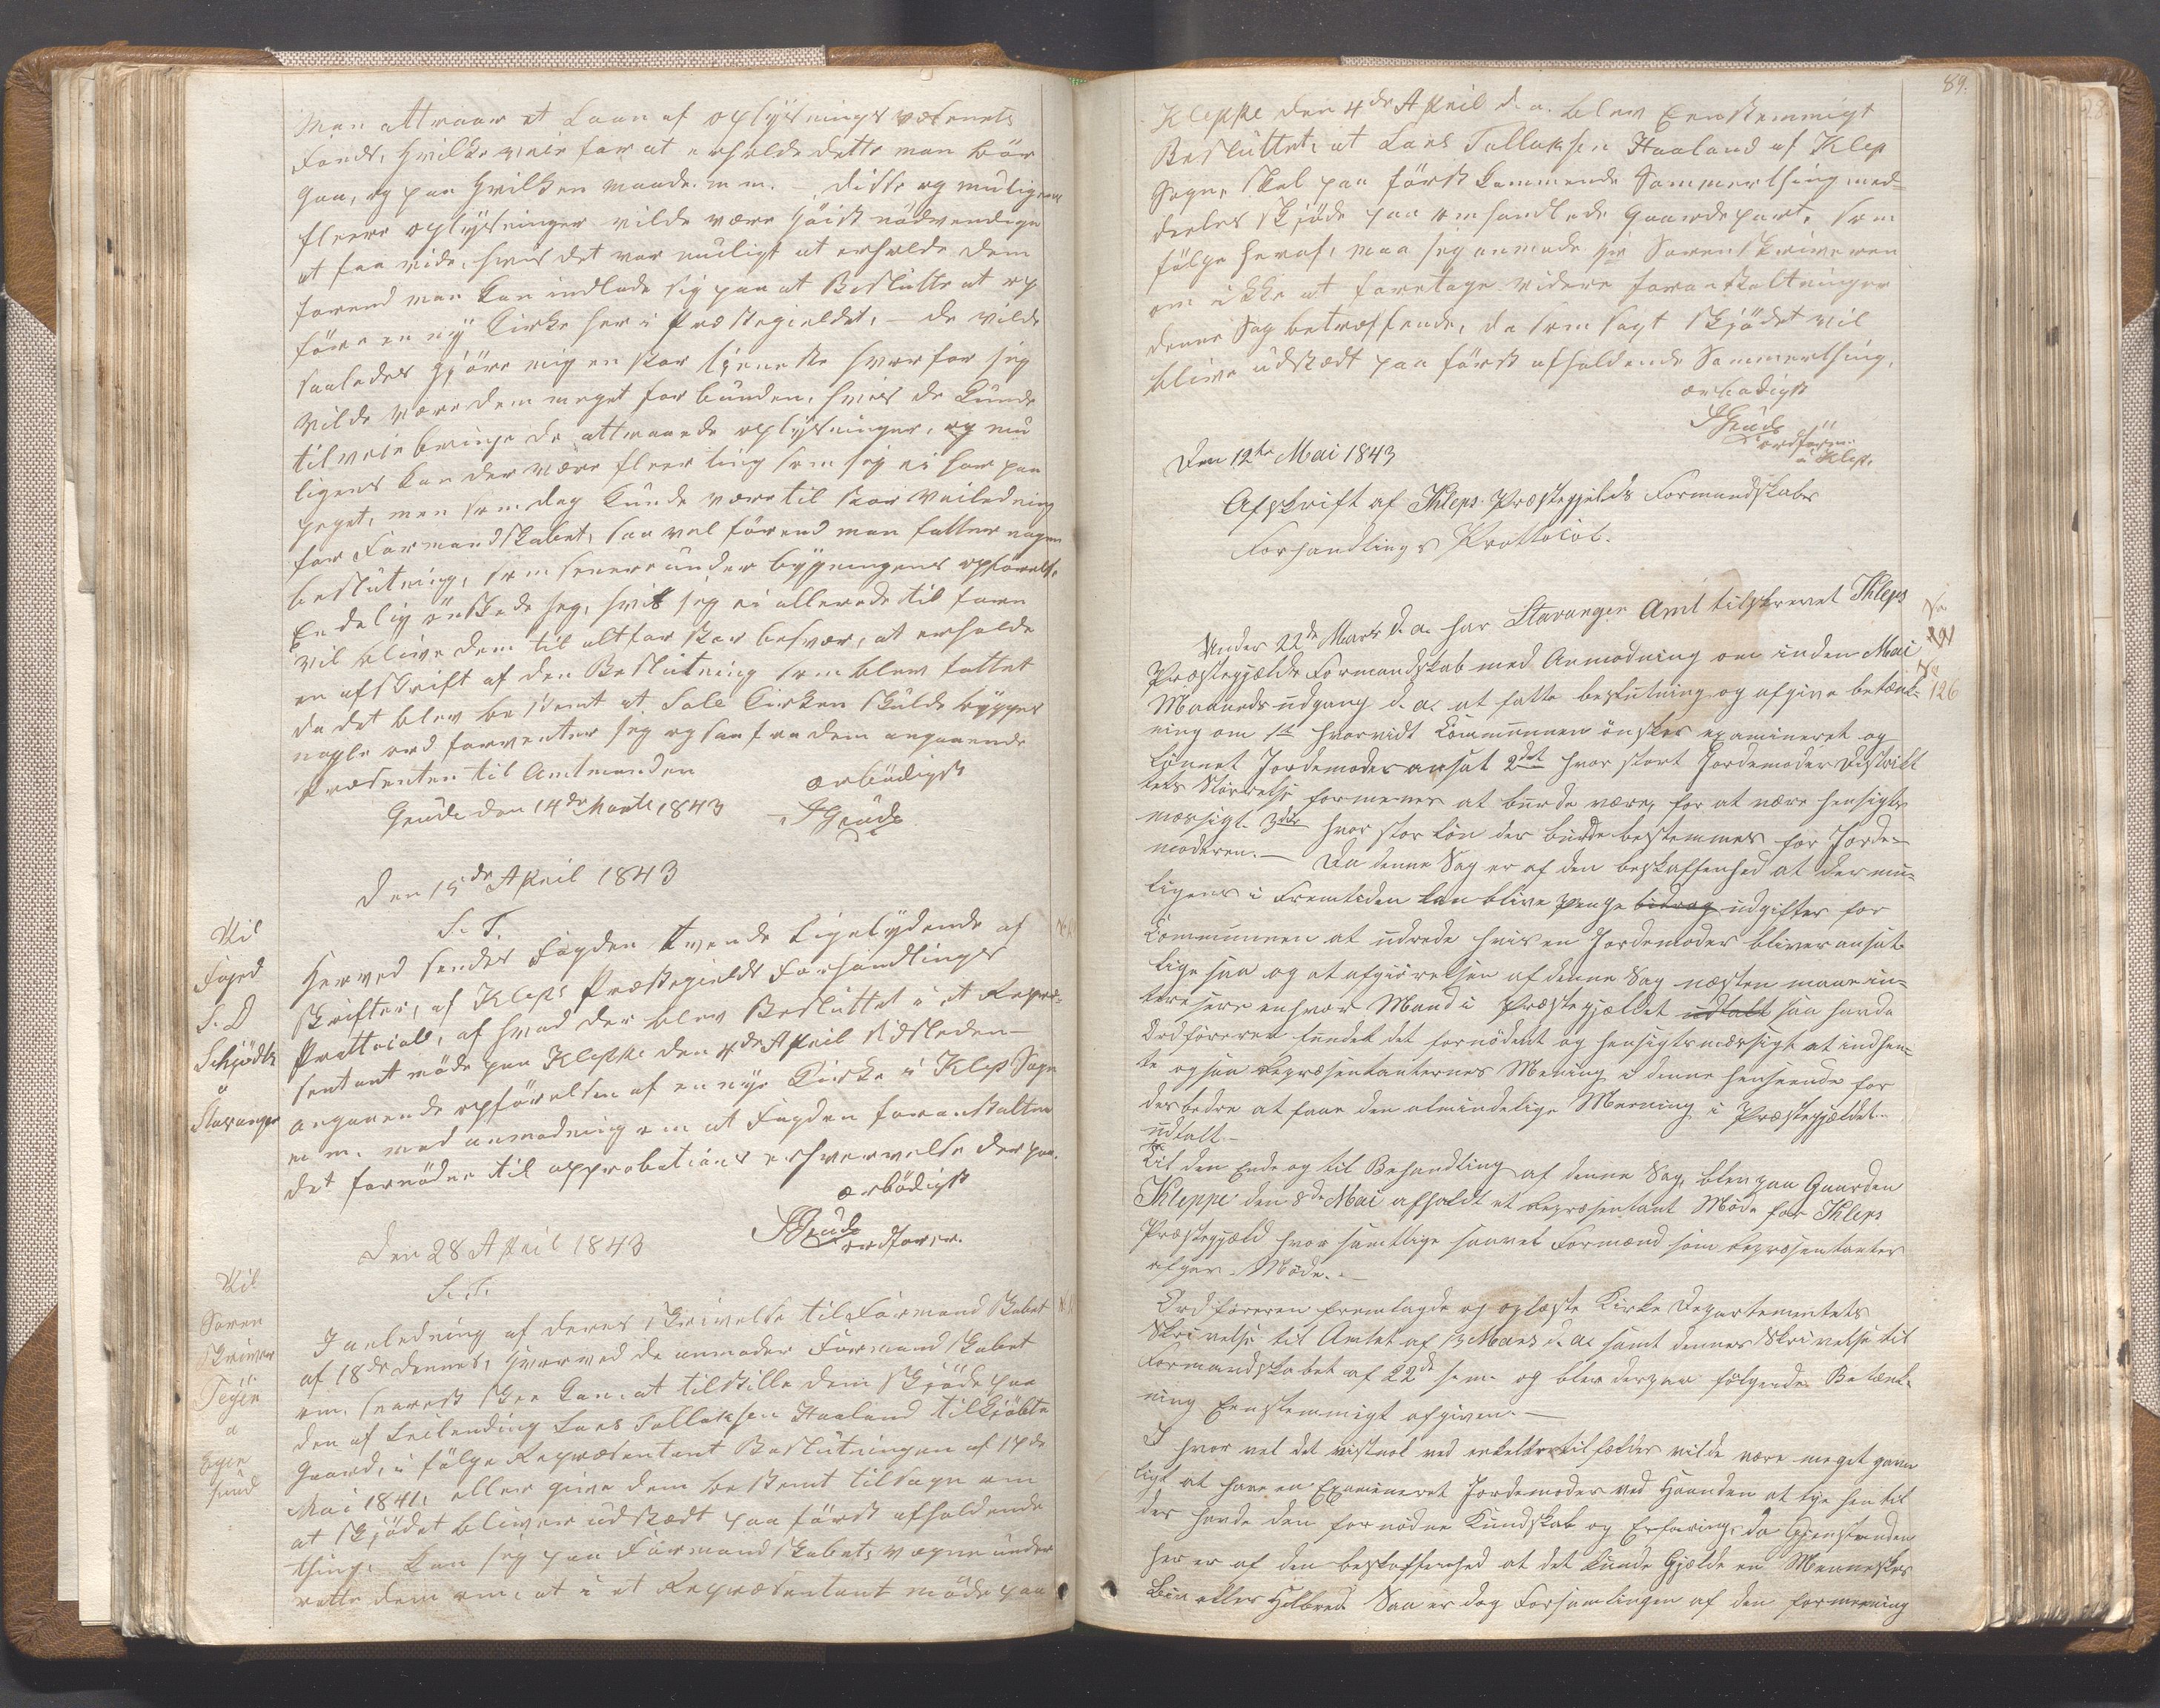 Man attraar et Laan af oplysnings væsenets
Fond, hvilke veie for at erholde dette man bör
gaa, og paa hvilken maade m m. – disse og muligens
fleere oplysninger vilde være höist nödvendige
at faa vide, hvis det var muligt at erholde dem
forend man kan indlade sig paa at Beslutte at op
före en ny Kirke her i Præstegieldet, – de vilde
saaledes gjöre mig en stor tjeneste hvorfor jeg
vilde være dem meget forbunden, hvis de kunde
tilveie bringe de attraaede oplysninger, og mu
ligens kan der være fleer ting som jeg ei har paa
peget, men som dog kunde være til stor Veiledning
for Formandskabet, saa vel förend man fatter nogen
beslutning, som senere under bygningens opförelse
Endelig önskede jeg, hvis jeg ei allerede til forn
vil blive dem til alt for stor besvær, at erholde
en afskrift af den Beslutning som blev fattet
da det blev bestemt at Sole Kirken skulde bygges
nogle ord forventer jeg ogsaa fra dem angaaende
Præsenten til Amtmanden
ærbödigst
Grude den 14de Marts 1843
Grude
Den 15de April 1843
S. T.
Til
Foged
S. D
Schiödtz
a
Stavanger
Herved sendes Fogden tvende Ligelydende af
skrifter, af Kleps Præstegields Forhandlings
Prottocol, af hvad der blev Besluttet i et Repræ-
sentant möde paa Kleppe den 4de April sidsleden –
angaaende opförelsen af en nye Kirke i Klep Sogn
m m. med anmodning om at Fogden foranstalter
det fornödne til approbations erhvervelse derpaa.
ærbödigst
Grude
ordförer.
Den 28 April 1843
S. T.
Til
Soren
skriver
Feyer
a
Eger
sund
I anledning af deres skrivelse til Formandskabet
af 18de dennes, hvorved de anmoder Formandskabet
om, snarest skee kan at tilstille dem skjöde paa
den af Leilending Lars Tollaksen Haaland tilkjöbte
Gaard, i fölge Repræsentant Beslutningen af 17de
Mai 1841, eller give dem bestemt tilsagn om
at skjödet bliver udstædt paa först afholdende
thing. Kan jeg paa Formandskabets vegne under
rette dem om, at i et Repræsentant möde paa
89.
Kleppe den 4de April d. a. blev Eenstemmigt
Besluttet, at Lars Tollaksen Haaland af Klep
Sogn, skal paa först kommende Sommerthing med-
deeles skjöde paa omhandlede Gaardepart, som
fölge heraf, maa jeg anmode Hr Sorenskriveren
om ikke at foretage videre foranstaltninger
denne Sag betræffende, da som sagt skjödet vil
blive udstædt paa först afholdende Sommerthing.
ærbödigst
Grude
ordförer
i Klep.
Den 12te Mai 1843
Afskrift af Kleps Præstegjelds Formandskabs
Forhandlings Prottocol.
No
126
Under 22de Marts d. a. har Stavanger Amt tilskrevet Kleps
Præstegjelds Formandskab med Anmodning om inden Mai
Maaneds udgang d. a. at fatte beslutning og afgive betænk-
ning om 1ste hvorvidt Kommunen önsker examineret og
lönnet Jordemoder ansat 2det hvor stort Jordemoder Distrikt
tets Störrelse formenes at burde være, for at være hensigts
mæssigt. 3die hvor stor Lön der burde bestemmes for Jorde-
moderen. – Da denne Sag er af den beskaffenhed at der mu-
ligens i Fremtiden kan blive penge bidrag udgifter for
Kommunen at udrede hvis en Jordemoder bliver ansat
lige saa og at afgiörelsen af denne Sag næsten maae in-
teressere enhver Mand i Præstegjeldet udtalt saa havde
Ordföreren fundet det fornödent og hensigtsmæssigt at indhen-
te ogsaa Repræsentanternes Mening i denne henseende for
des bedre at faae den almindelige Meening i Præstegjeldet
udtalt. –
Til den Ende og til Behandling af denne Sag, blev paa Gaarden
Kleppe den 8de Mai afholdt et Repræsentant Möde for Kleps
Præstegjeld hvor samtlige saavel Formænd som Repræsentanter
afgav Möde. –
Ordföreren fremlagde og oplæste Kirke Departementets
Skrivelse til Amtet af 13 Marts d. a. samt dennes Skrivelse til
Formandskabet af 22de s. m. og blev derpaa fölgende Betænk-
ning Eenstemmigt afgiven. –
I hvor vel det vistnok ved enkelte tilfælder vilde være meget gavn
ligt at have en Examineret Jordemoder ved Haanden at tye hen til
der havde den fornödne Kundskab og Erfaring, da Gjenstanden
her er af den beskaffenhed at det kunde Gjælde en Menneskes
Liv eller Helbred. Saa er dog Forsamlingen af den formeening